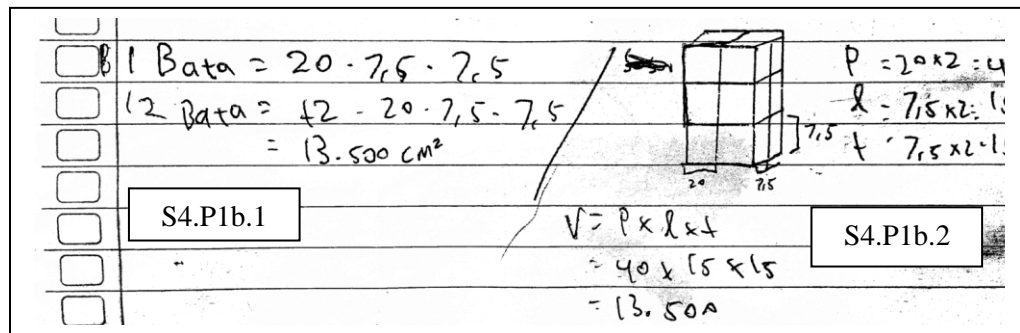 1 Bata = 20 . 7,5 . 7,5
12 Bata = 12 . 20 . 7,5 . 7,5
= 13.500 cm²
S4.P1b.1
7,5
20 7,5
P = 20x2 = 4
l = 7,5x2 = 15
t = 7,5x2 = 1
V = P x l x t
= 40 x 15 x 15
= 13.500
S4.P1b.2